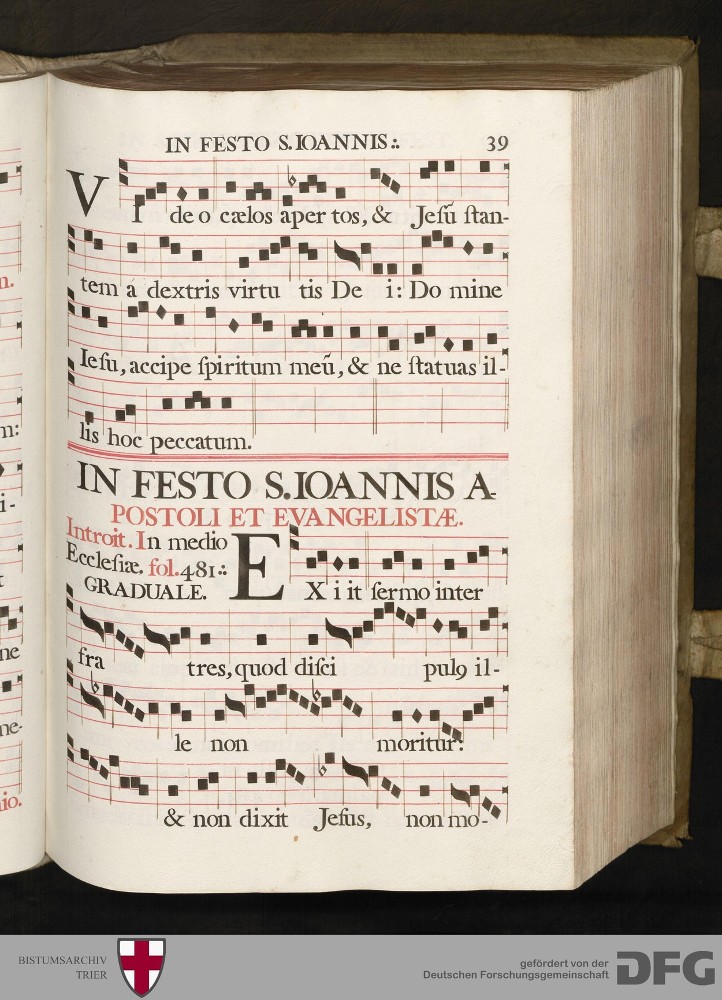 IN FESTO S. IOANNIS:. 39
VI de o cælos aper tos, & Jesũ stan-
tem á dextris virtu tis De i: Do mine
Iesu, accipe spiritum meũ, & ne statuas il-
lis hoc peccatum.
IN FESTO S. IOANNIS A-
POSTOLI ET EVANGELISTÆ.
Introit. In medio
Ecclesiæ. fol. 481:.
GRADUALE.
EX i it sermo inter
fra tres, quod disci pulꝯ il-
le non moritur:
& non dixit Jesus, non mo-
n.
m:
i-
t
ne
me-
io.
BISTUMSARCHIV
TRIER
gefördert von der
Deutschen Forschungsgemeinschaft
DFG